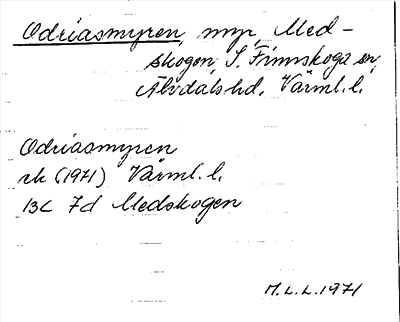 Odriasmyren, myr, Med-
skogen, S. Finnskoga sn,
Älvdals hd, Värml. l.
Odriasmyren
rk (1971) Värml. l.
13C 7d Medskogen
M.L.L. 1971